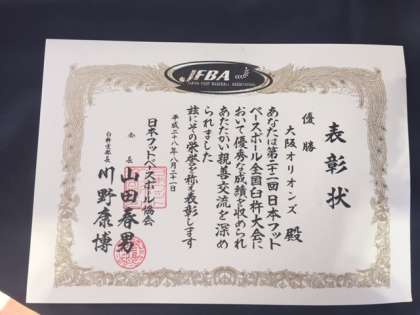 JFBA
JAPAN FOOT BASEBALL ASSOCIATION
表彰状
優勝
大阪オリオンズ 殿
あなたは第二十二回日本フット
ベースボール全国白井杯大会に
おいて優秀な成績を収められ
あたたかい親善交流を深め
られました
玆にその栄誉を称え表彰します
平成二十八年八月二十一日
日本フットベースボール協会
会長 山田春男
白井支部長 川野康博